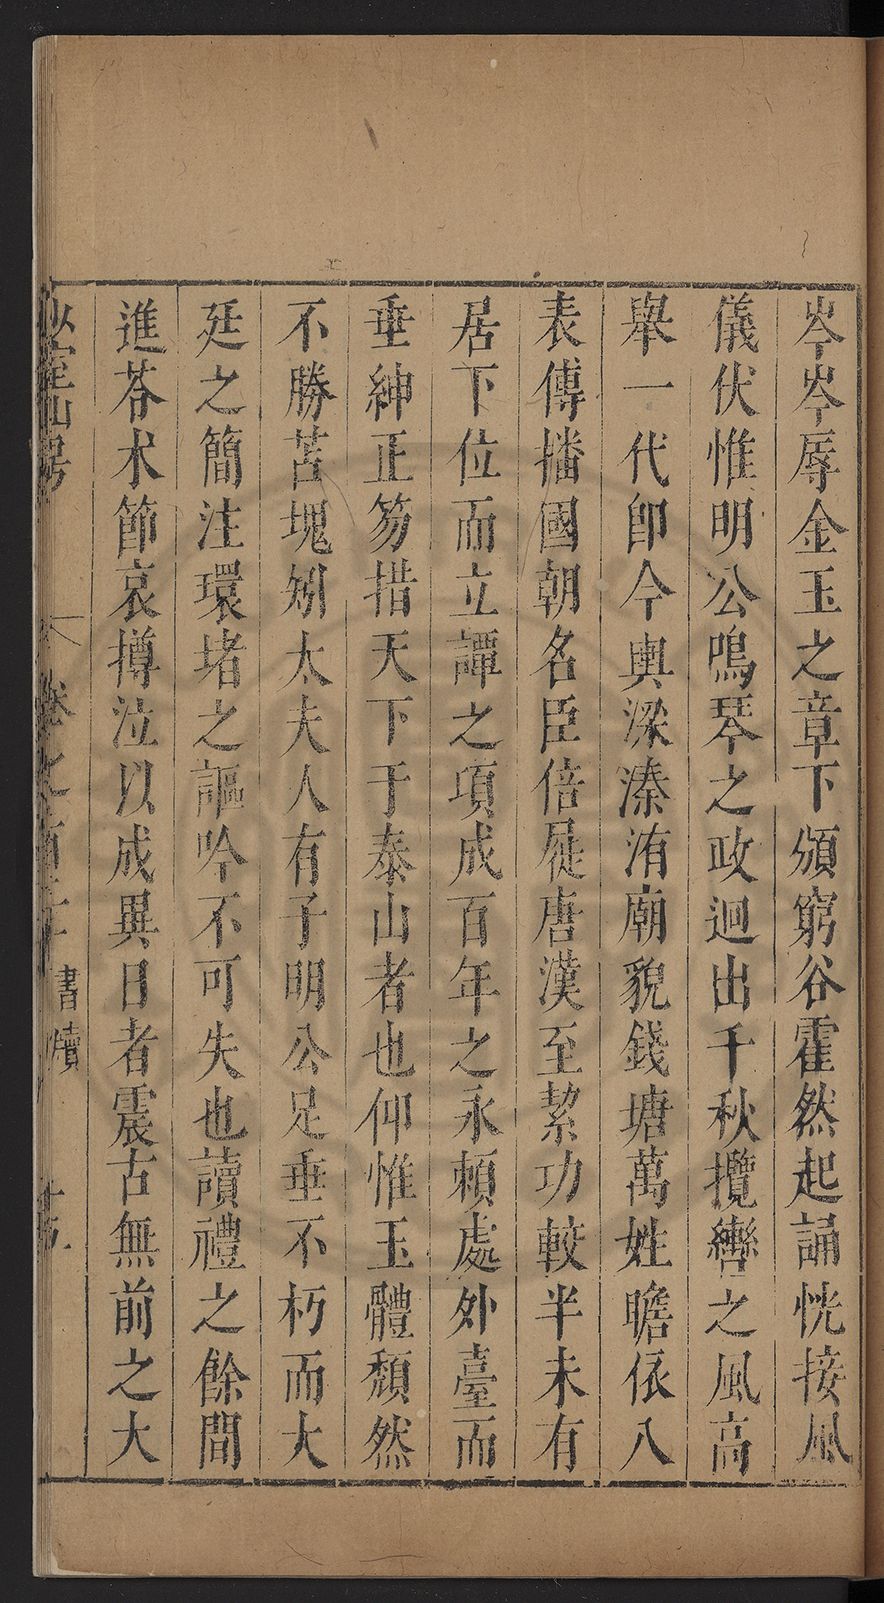 岑岑辱金玉之章下頒窮谷霍然起誦恍接風
儀伏惟明公鳴琴之政迴出千秋攬轡之風高
舉一代卽今輿梁溱洧廟貌錢塘萬姓瞻依八
表傳播國朝名臣倍屣唐漢至絜功較半未有
居下位而立譚之項成百年之永賴處外臺而
垂紳正笏措天下于泰山者也仰惟玉體頹然
不勝苫塊矧太夫人有子明公足垂不朽而大
廷之簡注環堵之謳吟不可失也讀禮之餘間
進苓朮節哀撙泣以成異日者震古無前之大
室山房
卷之百十
書牘
十五